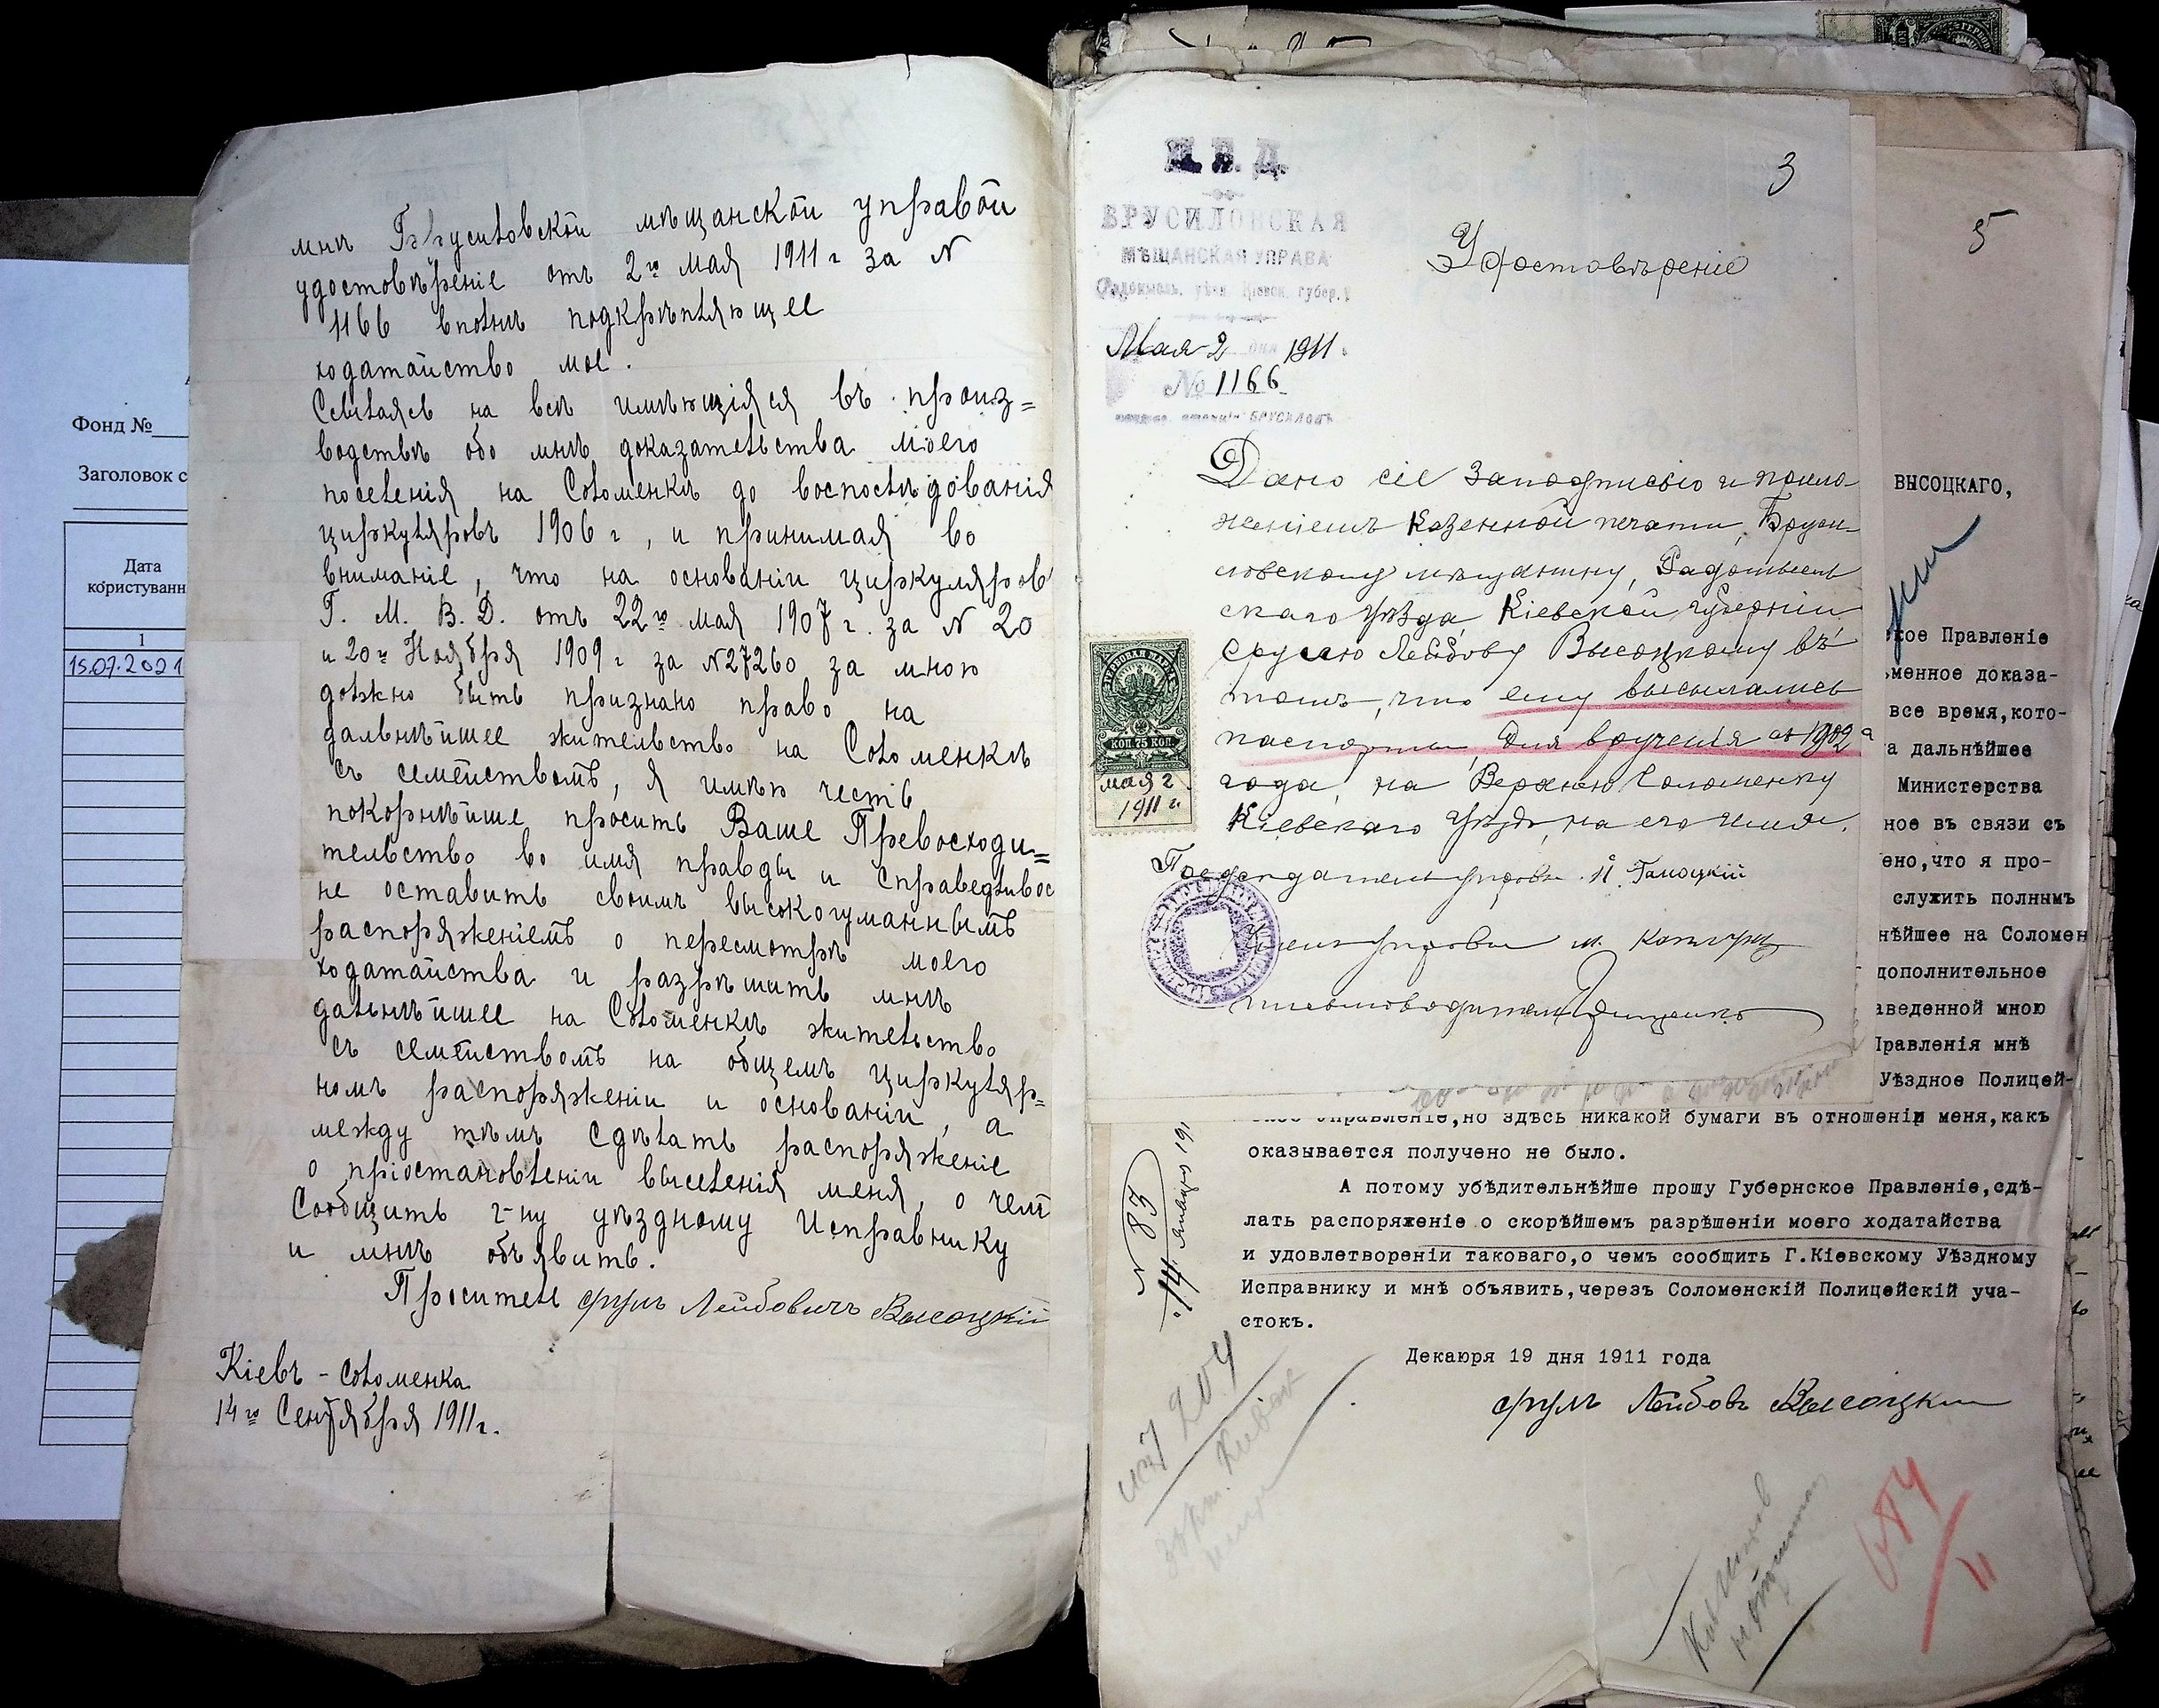 Фонд №
Заголовок с
Дата
користуванн
1
15.07.2021
мнѣ Брусиловской мѣщанской управой
удостовѣреніе отъ 2го мая 1911 г за N
1166 вполнѣ подкрѣпляющее
ходатайство мое.
Ссылаясь на всѣ имѣющіяся въ произ=
водствѣ обо мнѣ доказательства моего
поселенія на Соломенкѣ до воспослѣдованія
циркуляровъ 1906 г, и принимая во
вниманіе, что на основаніи циркуляров
Г. М. В. Д. отъ 22го мая 1907 г. за N 20
и 20го Ноября 1909 г за N 27260 за мною
должно быть признано право на
дальнѣйшее жительство на Соломенкѣ
съ семействомъ, я имѣю честь
покорнѣйше просить Ваше Превосходи=
тельство во имя правды и справедливос
не оставить своимъ высокогуманнымъ
распоряженіемъ о пересмотрѣ моего
ходатайства и разрѣшить мнѣ
дальнѣйшее на Соломенкѣ жительство
съ семействомъ на общемъ циркуляр=
номъ распоряженіи и основаніи, а
между тѣмъ сдѣлать распоряженіе
о пріостановленіи выселенія меня, о чем
Сообщить г-ну уѣздному Исправнику
и мнѣ объявить.
Проситель Сруль Лейбовичъ Высоцкій
Кіевъ - Соломенка
14го Сентября 1911 г.
3
М. В. Д.
БРУСИЛОВСКАЯ
МѢЩАНСКАЯ УПРАВА
Радомысл. уѣзд. Кіевск. губер.
Мая 2 дня 1911
№ 1166
БРУСИЛОВЪ
Удостовѣреніе
Дано сіе за подписью и прило
женіемъ Казенной печати, Бруси
ловскому мѣщанину, Радомысль
скаго уѣзда, Кіевской губерніи
Срулю Лейбову Высоцкому въ
томъ, что ему высылались
паспорты для врученія съ 1902
года, на Верхнюю Соломенку
Кіевскаго уѣзда, на его имя.
КОП. 75 КОП.
мая 2
1911 г.
Предсѣдатель управы
Членъ управы
письмоводитель
5
ВЫСОЦКАГО,
кое Правленіе
ьменное доказа-
все время,кото-
а дальнѣйшее
Министерства
ное въ связи съ
ено,что я про-
служить полнымъ
нѣйшее на Соломен
дополнительное
веденной мною
Правленія мнѣ
Уѣздное Полицей-
ское Управленіе,но здѣсь никакой бумаги въ отношеніи меня,какъ
оказывается получено не было.
А потому убѣдительнѣйше прошу Губернское Правленіе,сдѣ-
лать распоряженіе о скорѣйшемъ разрѣшеніи моего ходатайства
и удовлетвореніи таковаго,о чемъ сообщить Г.Кіевскому Уѣздному
Исправнику и мнѣ объявить,черезъ Соломенскій Полицейскій уча-
стокъ.
Декаюря 19 дня 1911 года
Сруль Лейбовъ Высоцкій
N 83
14 Января 191